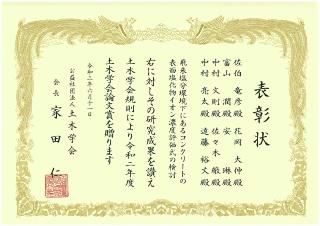 表彰状
佐伯竜彦殿 花岡大伸殿
富山潤殿 安琳殿
中村文則殿 佐々木厳殿
中村亮太殿 遠藤裕丈殿
飛来塩分環境下にあるコンクリートの
表面塩化物イオン濃度評価式の検討
右に対しその研究成果を讃え
土木学会規則により令和二年度
土木学会論文賞を贈ります
令和三年六月十一日
公益社団法人土木学会
会長 家田仁